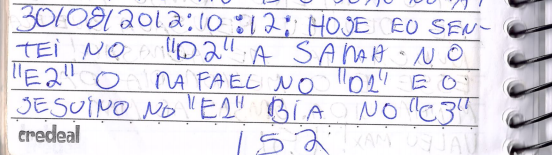 30/08/2012:10:12: HOJE EO SEN-
TEI NO "D2" A SARAH NO
"E2" O RAFAEL NO "D1" E O
JESUINO NO "E1" BIA NO "C3"
credeal
152